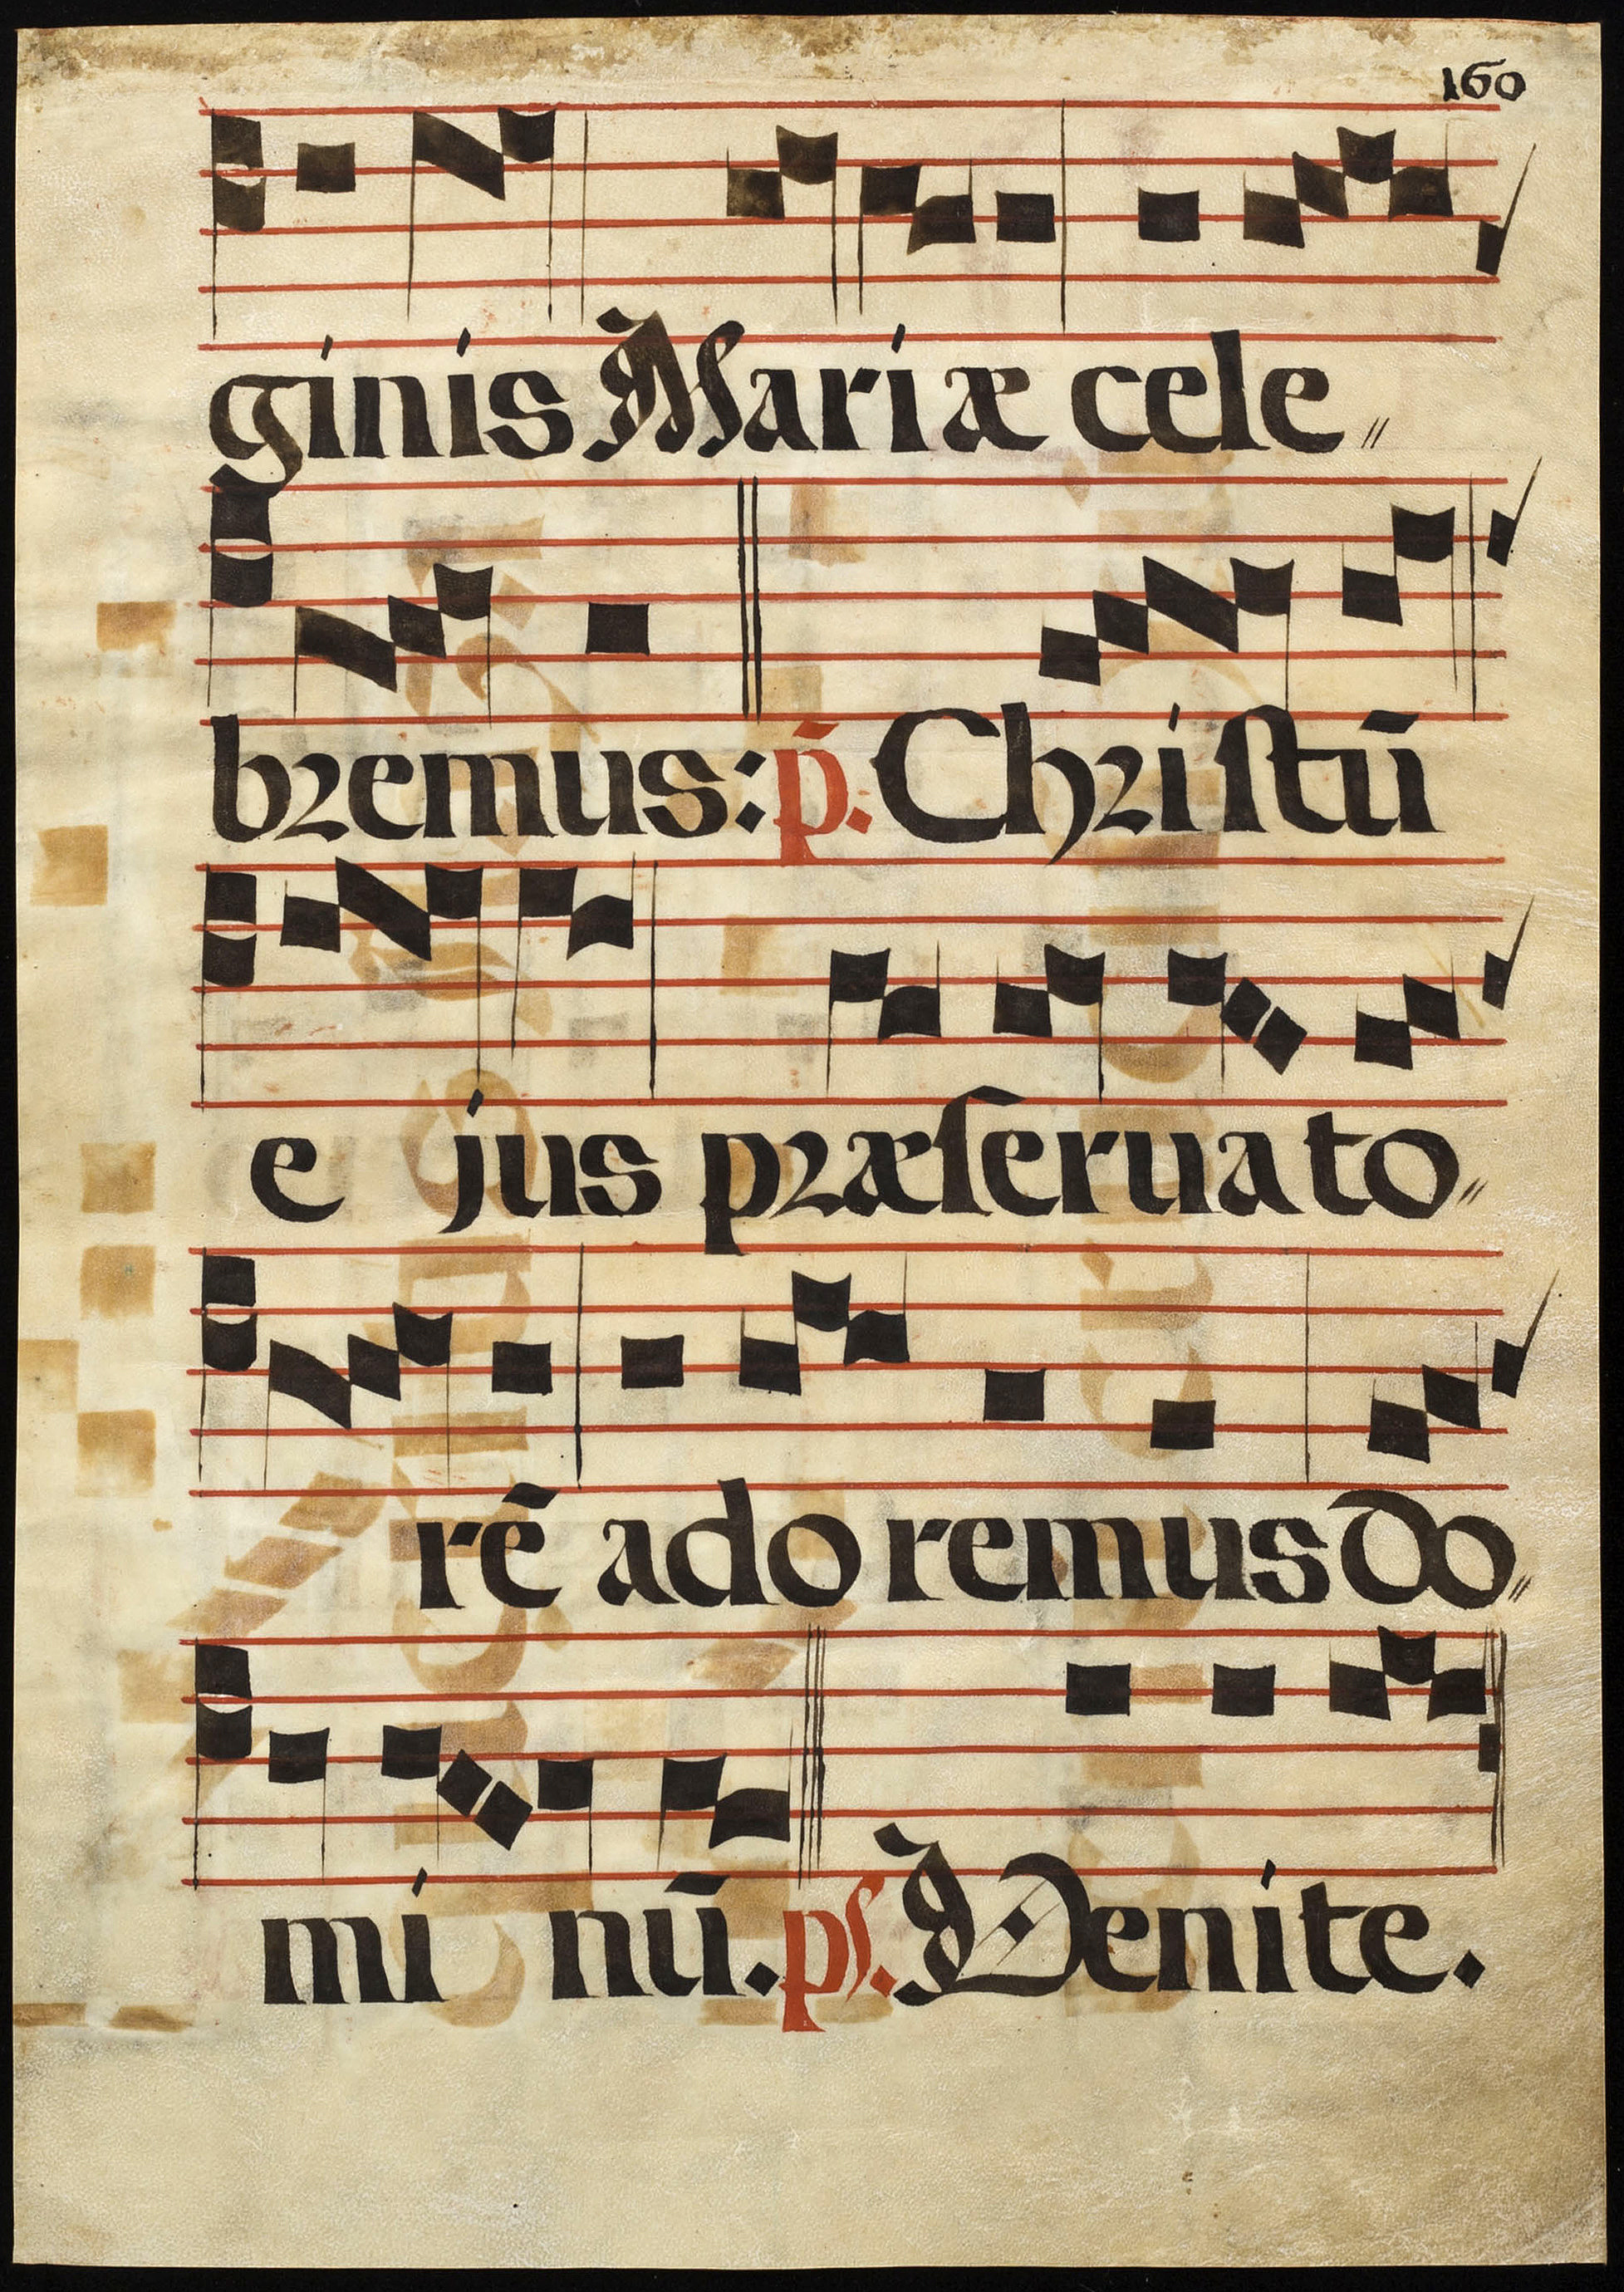 160
ginis Mariæ cele〃
bremus: p̄. Christū
e jus præſeruato〃
rē ado remus do〃
mi nū. pſ. Venite.